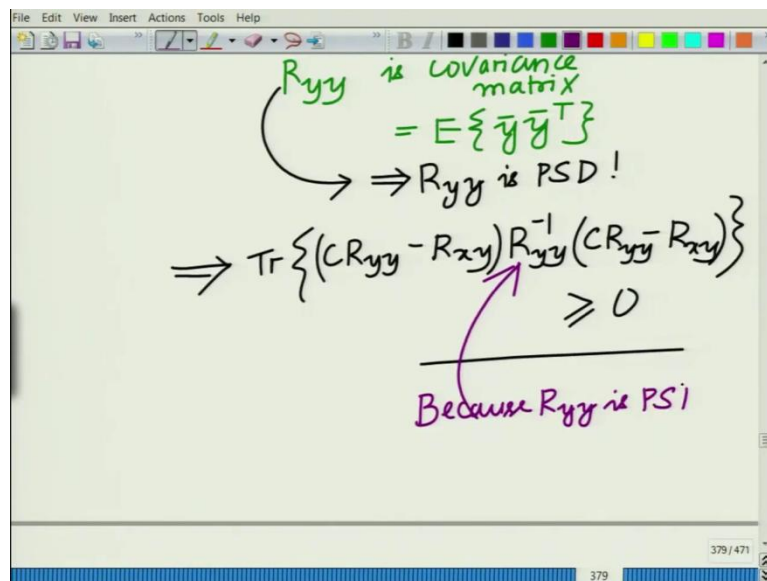 File Edit View Insert Actions Tools Help
R_yy is covariance
matrix
= E{ȳ ȳ^T}
⇒ R_yy is PSD!
⇒ Tr{(CR_yy - R_xy) R_yy^-1 (CR_yy - R_xy)}
≥ 0
Because R_yy is PSI
379/471
379